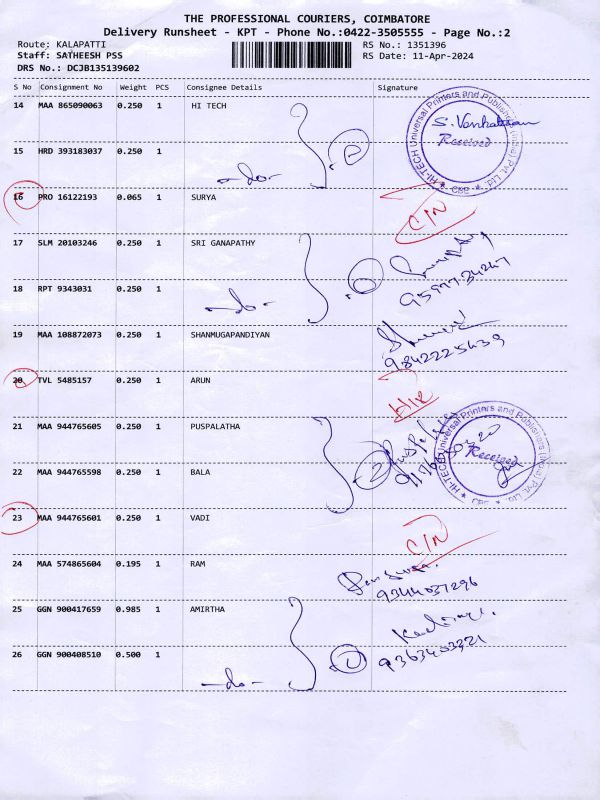 THE PROFESSIONAL COURIERS, COIMBATORE
Delivery Runsheet - KPT - Phone No.:0422-3505555 - Page No.:2
Route: KALAPATTI RS No.: 1351396
Staff: SATHEESH PSS RS Date: 11-Apr-2024
DRS No.: DCJB135139602
S No Consignment No Weight PCS Consignee Details Signature
14 MAA 865090063 0.250 1 HI TECH
HI-TECH Universal Printers and Publishers (India) Pvt. Ltd. CBE
Received
15 HRD 393183037 0.250 1 -do- 2
16 PRO 16122193 0.065 1 SURYA C/N
17 SLM 20103246 0.250 1 SRI GANAPATHY
18 RPT 9343031 0.250 1 -do-
19 MAA 108872073 0.250 1 SHANMUGAPANDIYAN
9842225639
20 TVL 5485157 0.250 1 ARUN
21 MAA 944765605 0.250 1 PUSPALATHA
HI-TECH Universal Printers and Publishers (India) Pvt. Ltd. CBE
Received
22 MAA 944765598 0.250 1 BALA 2
23 MAA 944765601 0.250 1 VADI C/N
24 MAA 574865604 0.195 1 RAM
9344037296
25 GGN 900417659 0.985 1 AMIRTHA
9363403321
26 GGN 900408510 0.500 1 -do-